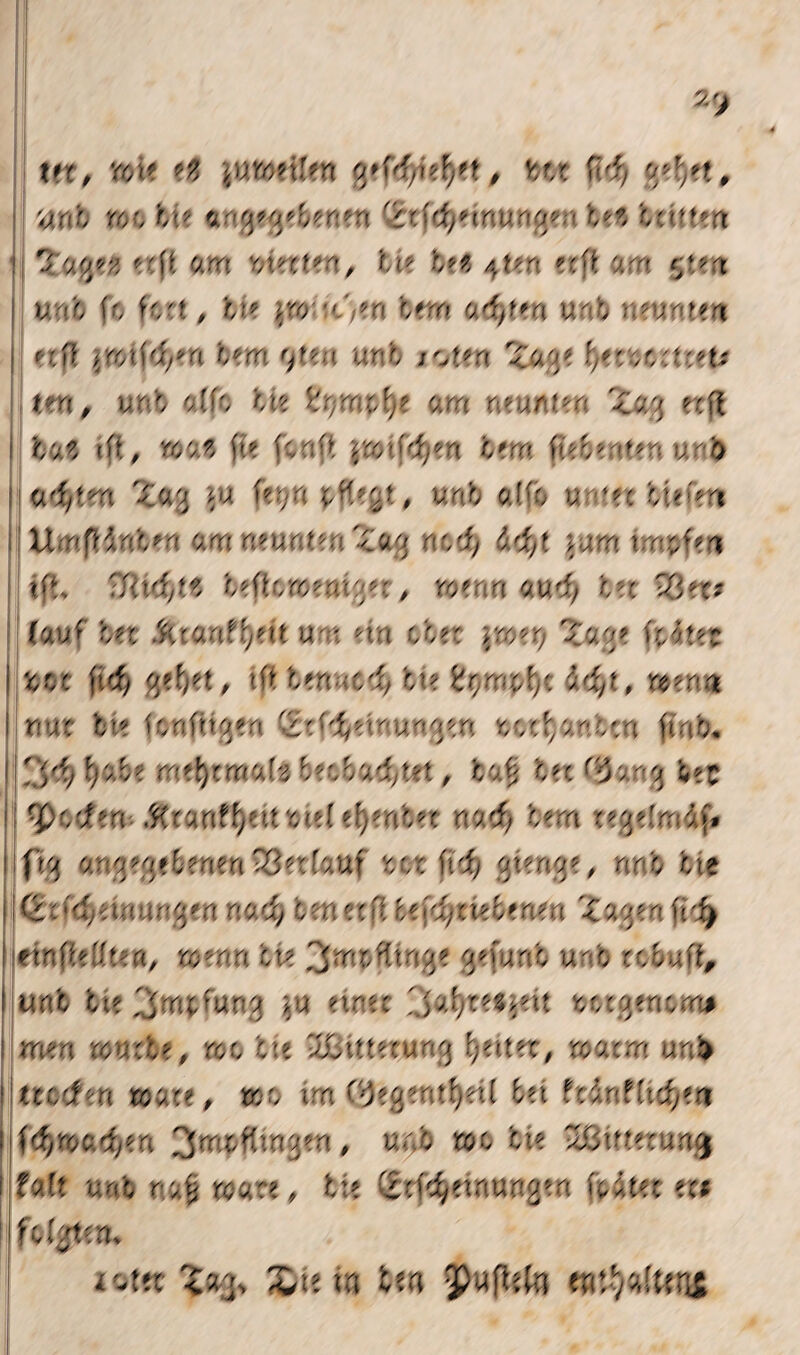 29
ter, wie es zuweilen geschiehet, vor sich gehet,
und wo die angegebenen Erscheinungen des dritten
Tages erst am vierten, die des 4ten erst am 5ten
und so fort, die zwischen dem achten und neunten
erst zwischen dem 9ten und 10ten Tage hervortret⸗
ten, und also die Lymphe am neunten Tag erst
das ist, was sie sonst zwischen dem siebenten und
achten Tag zu seyn pflegt, und also unter diesen
Umständen am neunten Tag noch ächt zum impfen
ist. Nichts destoweniger, wenn auch der Ver⸗
lauf der Krankheit um ein oder zwey Tage später
vor sich gehet, ist dennoch die Lymphe ächt, wenn
nur die sonstigen Erscheinungen vorhanden sind.
Ich habe mehrmals beobachtet, daß der Gang der
Pocken⸗Krankheit viel ehender nach dem regelmäs⸗
sig angegebenen Verlauf vor sich gienge, nnd die
Erscheinungen nach den erst beschriebenen Tagen sich
einstellten, wenn die Impflinge gesund und robust,
und die Impfung zu einer Jahreszeit vorgenom⸗
men wurde, wo die Witterung heiter, warm und
trocken ware, wo im Gegentheil bei kränklichen
schwachen Impflingen, und wo die Witterung
kalt und naß ware, die Erscheinungen später er⸗
folgten.
10ter Tag. Die in den Pusteln enthaltene